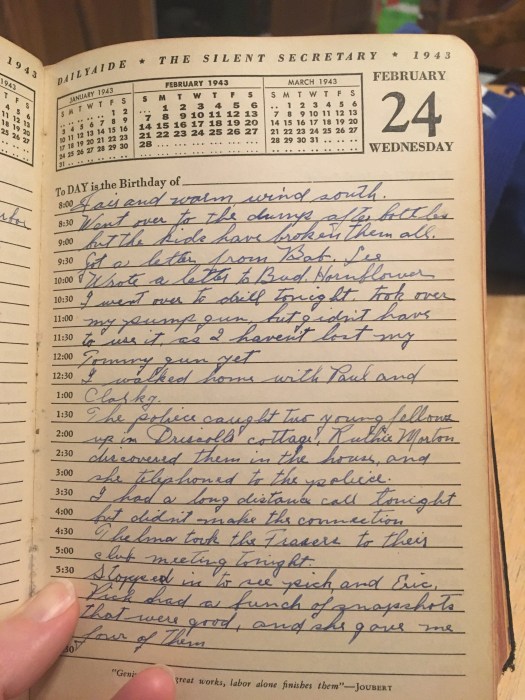 1943
DAILYAIDE ★ THE SILENT SECRETARY ★ 1943
JANUARY 1943
S M T W T F S
1 2
3 4 5 6 7 8 9
10 11 12 13 14 15 16
17 18 19 20 21 22 23
24 25 26 27 28 29 30
31
FEBRUARY 1943
S M T W T F S
1 2 3 4 5 6
7 8 9 10 11 12 13
14 15 16 17 18 19 20
21 22 23 24 25 26 27
28
MARCH 1943
S M T W T F S
1 2 3 4 5 6
7 8 9 10 11 12 13
14 15 16 17 18 19 20
21 22 23 24 25 26 27
28 29 30 31
FEBRUARY
24
WEDNESDAY
To DAY is the Birthday of
8:00 Fair and warm wind south.
8:30 Went over to the dumps after bottles
9:00 but the kids have broken them all.
9:30 Got a letter from Bab. Lee
10:00 Wrote a letter to Bud. Hornblower
10:30 I went over to drill tonight. took over
11:00 my pump gun, but didnt have
11:30 to use it as I havent lost my
12:00 Tommy gun yet
12:30 I walked home with Paul and
1:00 Clarky.
1:30 The police caught two young fellows
2:00 up in Driscolls cottage, Ruthie Morton
2:30 discovered them in the house, and
3:00 she telephoned to the police.
3:30 I had a long distance call tonight
4:00 but didn't make the connection
4:30 Thelma took the Frasers to their
5:00 club meeting tonight.
5:30 Stopped in to see pich and Eric.
Pich had a bunch of snapshots
that were good, and she gave me
four of them
great works, labor alone finishes them"—JOUBERT